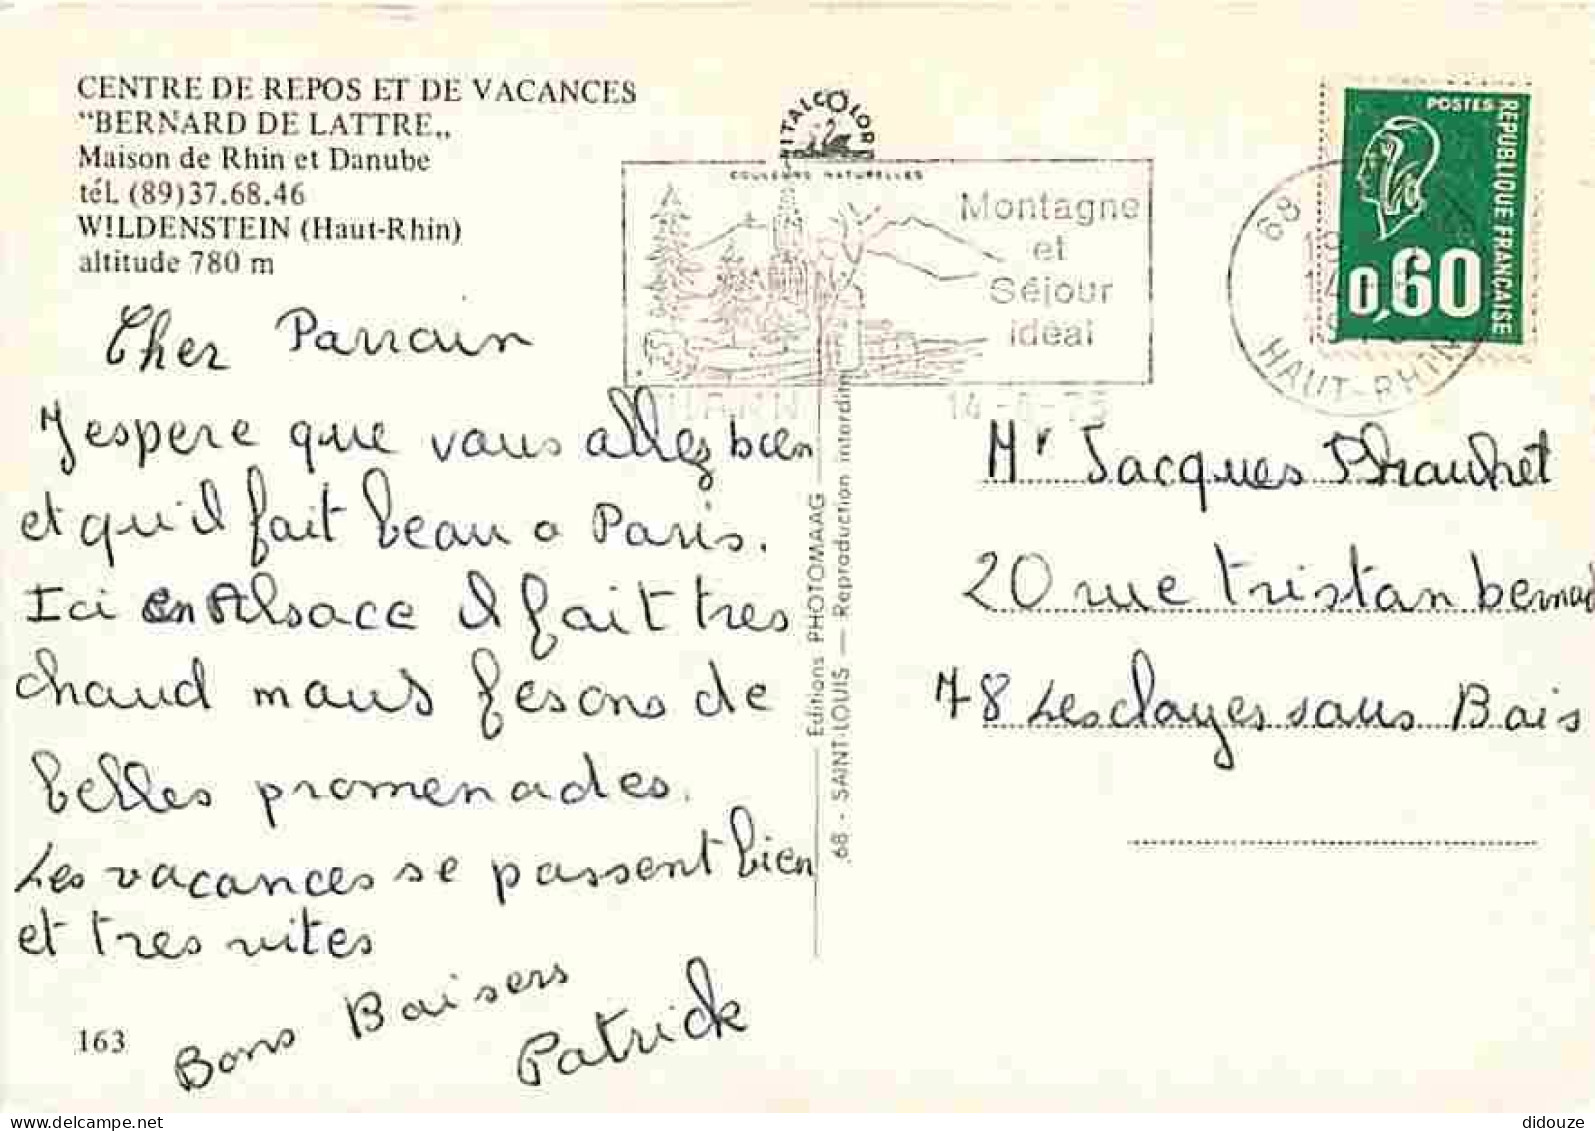 CENTRE DE REPOS ET DE VACANCES
"BERNARD DE LATTRE„
Maison de Rhin et Danube
tél. (89)37.68.46
WILDENSTEIN (Haut-Rhin)
altitude 780 m
VITALCOLOR
COULEURS NATURELLES
Montagne
et
Séjour
idéal
POSTES
REPUBLIQUE FRANÇAISE
0,60
68
HAUT-RHIN
Cher Parrain
J'espere que vous allez bien
et qu'il fait beau a Paris.
Ici en Alsace il fait tres
chaud mous fesons de
belles promenades.
Les vacances se passent bien
et tres vites
Bons Baisers
Patrick
163
Editions PHOTOMAAG
68 - SAINT-LOUIS — Reproduction interdite
Mr Jacques
20 rue tristan bernad
78 Les clayes sous Bois
didouze